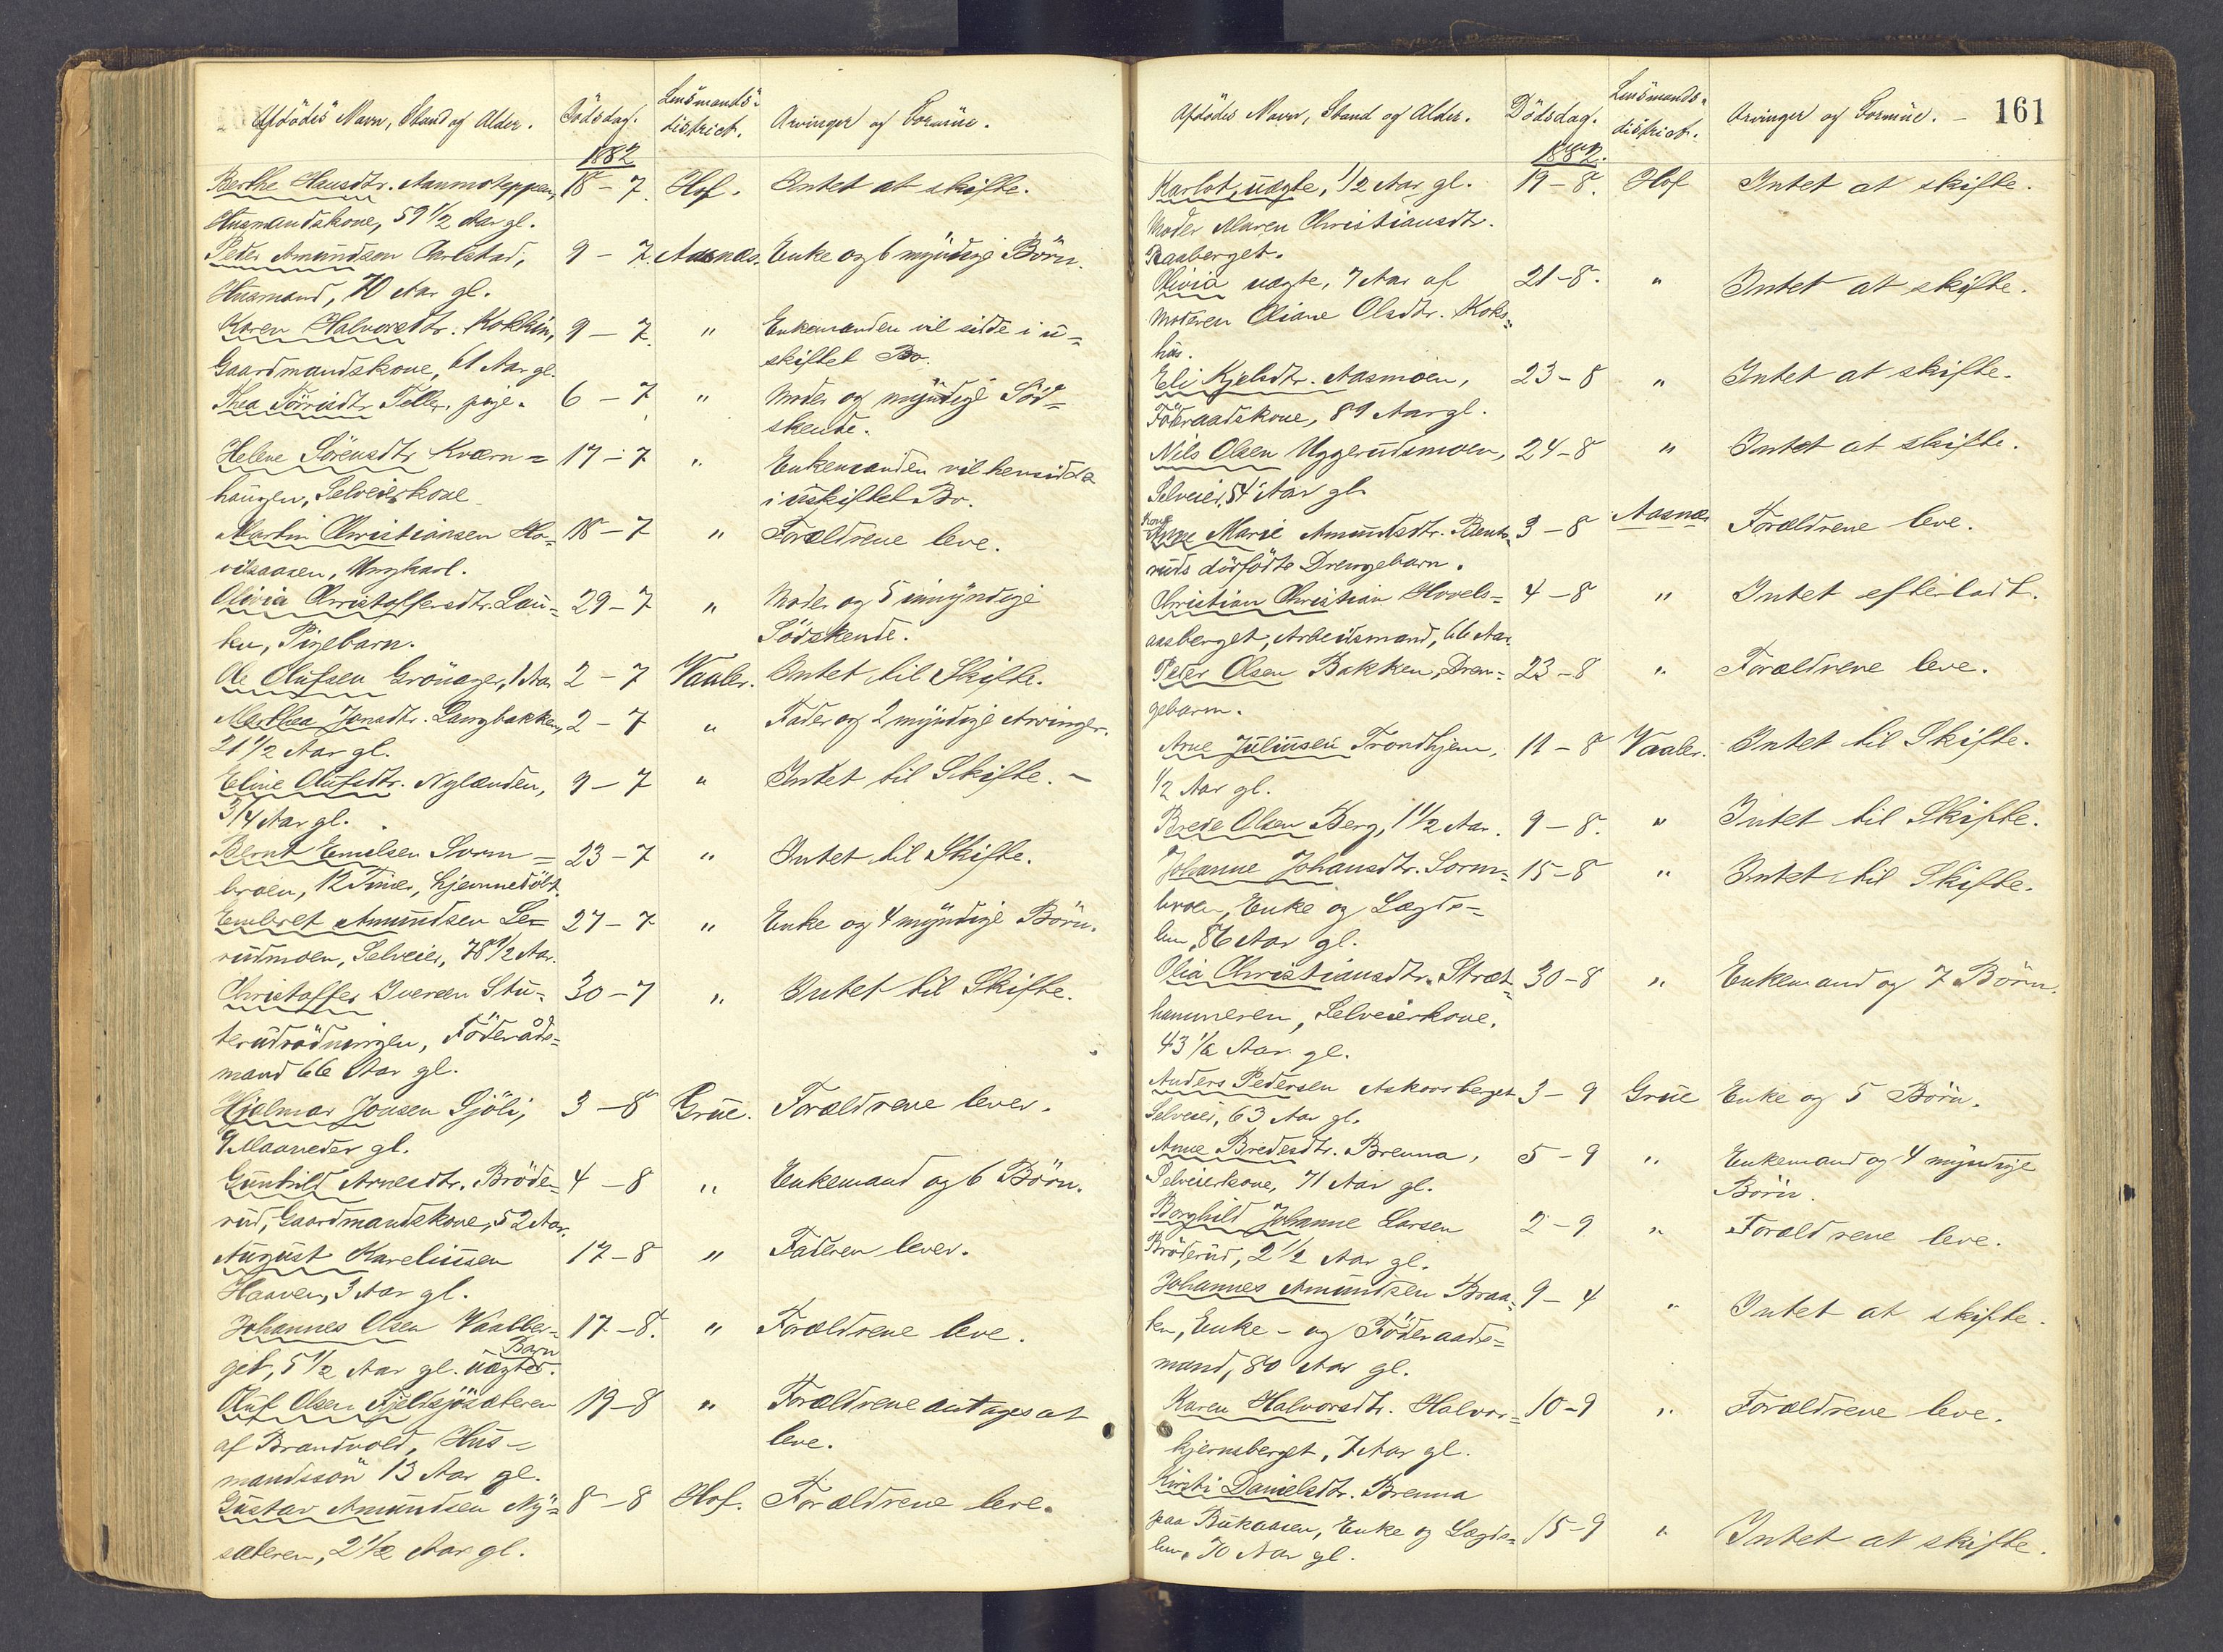 Afdødes Navn, Stand og Alder. Dödsdag. Lensmands- district. Arvinger og Formue.
1882
Berthe Hansdtr. Aanmoteppen, 18 – 7. Hof. Intet at skifte.
Husmandskone, 59 1/2 Aar gl.
Peder Amundsen Carlstad, 9 – 7. Aasnæs. Enke og 6 myndige Börn.
Husmand, 70 Aar gl.
Karen Halvorsdtr. Kokkin, 9 – 7. " Enkemanden vil sidde i u=
Gaardmandskone, 61 Aar gl. skiftet Bo.
Thea Törrisdtr. Teller, pige. 6 – 7 " Moder og myndige Söd=
skende.
Helene Sörensdtr. Kværn= 17 – 7 " Enkemanden vil hensidde
haugen, Selveierkone i uskiftet Bo.
Martin Christiansen Ho= 18 – 7 " Forældrene leve.
velsaasen, Ungkarl.
Olivia Christoffersdtr. Lau= 29 – 7 " Moder og 5 umyndige
ten, Pigebarn. Södskende.
Ole Olufsen Grönager, 1 Aar 2 – 7 Vaaler. Intet til Skifte.
Marthea Jonsdtr. Langbakken, 2 – 7 " Fader og 2 myndige Arvinger.
21 1/2 Aar gl.
Eline Olufsdtr. Nylænden, 9 – 7 " Intet til Skifte. –
3/4 Aar gl.
Bernt Emilsen Sorm= 23 – 7 " Intet til Skifte.
broen, 12 Timer, hjemmedöbt.
Embret Amundsen Le= 27 – 7 " Enke og 4 myndige Börn.
rudmoen, Selveier, 78 1/2 Aar.
Christoffer Iversen Stu= 30 – 7 " Intet til Skifte.
terudrödningen, Föderåds=
mand 66 Aar gl.
Hjalmar Jonsen Sjöli, 3 – 8 Grue. Forældrene lever.
9 Maaneder gl.
Gunhild Arnesdtr. Bröde= 4 – 8 " Enkemand og 6 Börn.
rud, Gaardmandskone, 52 Aar.
August Kareliusen 17 – 8 " Faderen lever.
Haaven, 3 Aar gl.
Johannes Olsen Vaalber= 17 – 8. " Forældrene leve.
Barn
get, 5 1/2 Aar gl. uægte.
Oluf Olsen Fjeldsjösæteren 19 – 8 " Forældrene antages at
af Brandvold, Hus= leve.
mandssön 13 Aar gl.
Gustav Amundsen Ny= 8 – 8 Hof. Forældrene leve.
sæteren, 2 1/2 Aar gl.
Afdødes Navn, Stand og Alder. Dödsdag. Lensmands- district. Arvinger og Formue. – 161
1882.
Karlot, uægte, 1/2 Aar gl. 19 – 8. Hof Intet at skifte.
Moder Maren Christiansdtr.
Raaberget.
Olivia uægte, 7 Aar af 21 – 8. " Intet at skifte.
Moderen Oliane Olsdtr. Koks=
hus.
Eli Kjelsdtr. Aasmoen, 23 – 8 " Intet at skifte.
Föderaadskone, 89 Aar gl.
Nils Olsen Uggerudsmoen, 24 – 8 " Intet at skifte.
Selveier, 54 Aar gl.
Kone
Anne Marie Amundsdtr. Bents= 3 – 8 Aasnæs Forældrene leve.
ruds dödfödte Drengebarn.
Christian Christian Hovels= 4 – 8 " Intet efterladt.
aasberget, Arbeidsmand, 66 Aar.
Peder Olsen Bakken, Dren= 23 – 8 " Forældrene leve.
gebarn.
Arne Juliusen Trondhjem, 11 – 8 Vaaler. Intet til Skifte.
1/2 Aar gl.
Brede Olsen Berg, 1 1/2 Aar. 9 – 8. " Intet til Skifte.
Johanne Johansdtr. Sorm= 15 – 8 " Intet til Skifte.
broen, Enke og Lægds=
lem, 86 Aar gl.
Olia Christiansdtr. Stræt= 30 – 8 " Enkemand og 7 Börn.
hammeren, Selveierkone,
43 1/2 Aar gl.
Anders Pedersen Askorsberget 3 – 9 Grue Enke og 5 Börn.
Selveier, 63 Aar gl.
Anne Bredesdtr. Brenna, 5 – 9 " Enkemand og 4 myndige
Selveierkone, 71 Aar gl. Börn.
Borghild Johanne Larsen 2 – 9 " Forældrene leve.
Bröderud, 2 1/2 Aar gl.
Johannes Amundsen Braa= 9 – 4 " Intet at skifte.
ten, Enke- og Föderaads=
mand, 80 Aar gl.
Karen Halvorsdtr. Halvor= 10 – 9 " Forældrene leve.
kjernsberget, 7 Aar gl.
Kirsti Danielsdtr. Brenna
paa Bukaasen, Enke og Lægds= 15 – 9 " Intet at skifte.
lem, 70 Aar gl.